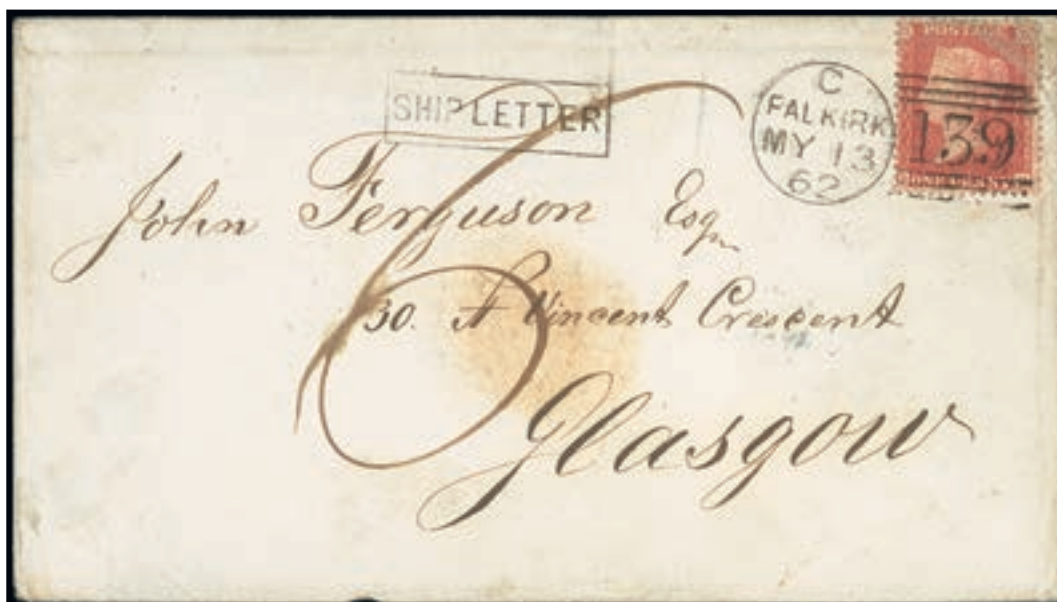 SHIP LETTER
C
FALKIRK
MY 13
62
POSTAGE
139
John Ferguson Esq
6
30. St Vincent Crescent
Glasgow